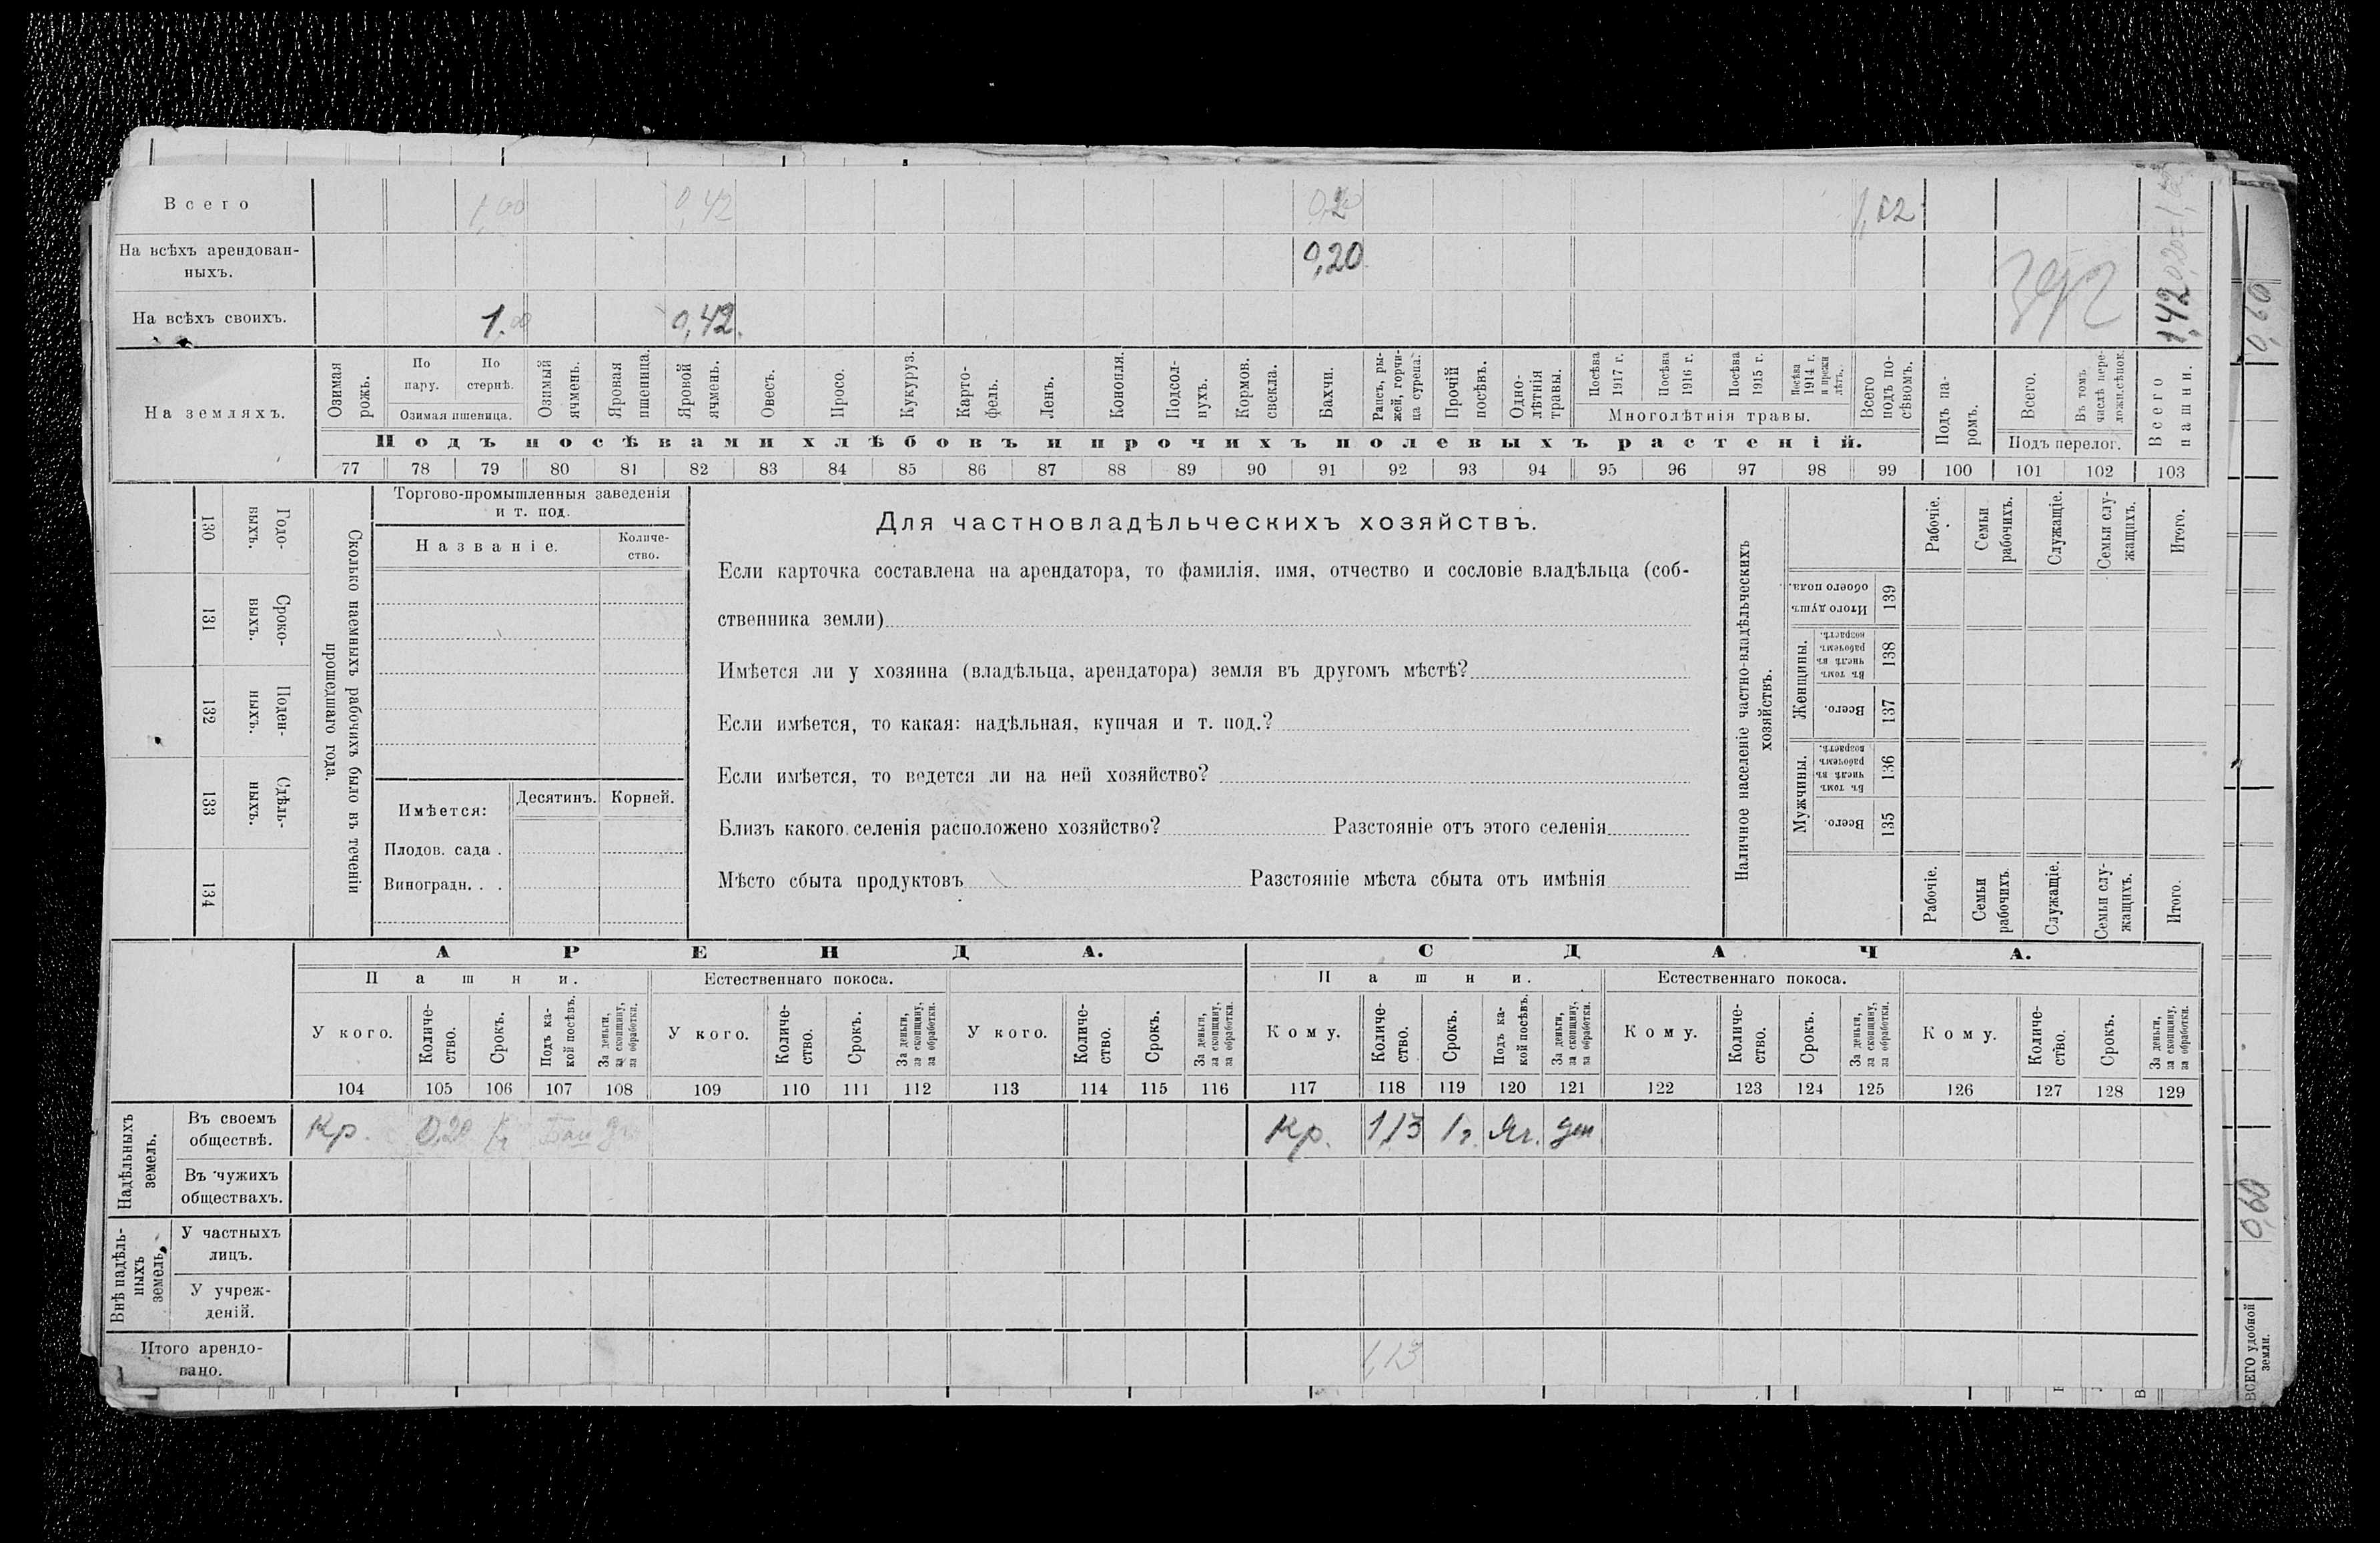 Всего 1,00 0,42 0,20 1,62
На всѣхъ арендован-
ныхъ. 0,20
На всѣхъ своихъ. 1.00 0,42. 1,42
0,60
На земляхъ.
Озимая рожь.
По пару.
По стернѣ.
Озимая пшеница.
Озимый ячмень.
Яровая пшеница.
Яровой ячмень.
Овесъ.
Просо.
Кукуруз.
Карто-
фель.
Ленъ.
Конопля.
Подсол-
нухъ.
Кормов.
свекла.
Бахчи.
Рапсъ, ры-
жей, горчи-
ца сурепа.
Прочій
посѣвъ.
Одно-
лѣтнія
травы.
Посѣва
1917 г.
Посѣва
1916 г.
Посѣва
1915 г.
Посѣва
1914 г.
и прежн
лѣтъ.
Многолѣтнія травы.
Всего
подъ по-
сѣвомъ.
Подъ па-
ромъ.
Всего.
Въ томъ
числѣ пере-
ложн. сѣнок.
Подъ перелог.
Всего
пашни.
Подъ посѣвами хлѣбовъ и прочихъ полевыхъ растеній.
77 78 79 80 81 82 83 84 85 86 87 88 89 90 91 92 93 94 95 96 97 98 99 100 101 102 103
130 Годо-
выхъ.
131 Сроко-
выхъ.
132 Поден-
ныхъ.
133 Сдѣль-
ныхъ.
134
Сколько наемныхъ рабочихъ было въ теченіи
прошедшаго года.
Торгово-промышленныя заведенія
и т. под.
Названіе.
Количе-
ство.
Имѣется: Десятинъ. Корней.
Плодов. сада .
Виноградн. . .
Для частновладѣльческихъ хозяйствъ.
Если карточка составлена на арендатора, то фамилія, имя, отчество и сословіе владѣльца (соб-
ственника земли)
Имѣется ли у хозяина (владѣльца, арендатора) земля въ другомъ мѣстѣ?
Если имѣется, то какая: надѣльная, купчая и т. под.?
Если имѣется, то ведется ли на ней хозяйство?
Близъ какого селенія расположено хозяйство? Разстояніе отъ этого селенія
Мѣсто сбыта продуктовъ Разстояніе мѣста сбыта отъ имѣнія
Наличное населеніе частно-владѣльческихъ
хозяйствъ.
Рабочіе.
Семьи
рабочихъ.
Служащіе.
Семьи слу-
жащихъ.
Итого.
Итого душъ
обоего пола. 139
Женщины.
Въ томъ
числѣ въ
рабочемъ
возрастѣ. 138
Всего. 137
Мужчины.
Въ томъ
числѣ въ
рабочемъ
возрастѣ. 136
Всего. 135
Рабочіе.
Семьи
рабочихъ.
Служащіе.
Семьи слу-
жащихъ.
Итого.
АРЕНДА. СДАЧА.
Пашни. Естественнаго покоса. Пашни. Естественнаго покоса.
У кого.
Количе-
ство.
Срокъ.
Подъ ка-
кой посѣвъ.
За деньги,
за скопщину,
за обработки.
У кого.
Количе-
ство.
Срокъ.
За деньги,
за скопщину,
за обработки.
У кого.
Количе-
ство.
Срокъ.
За деньги,
за скопщину,
за обработки.
Кому.
Количе-
ство.
Срокъ.
Подъ ка-
кой посѣвъ.
За деньги,
за скопщину,
за обработки.
Кому.
Количе-
ство.
Срокъ.
За деньги,
за скопщину,
за обработки.
Кому.
Количе-
ство.
Срокъ.
За деньги,
за скопщину,
за обработки.
104 105 106 107 108 109 110 111 112 113 114 115 116 117 118 119 120 121 122 123 124 125 126 127 128 129
Надѣльныхъ
земель.
Въ своемъ
обществѣ. Кр. 0,20 Кр. 1,13 1г. Яч. ден
Въ чужихъ
обществахъ.
Внѣ надѣль-
ныхъ
земель.
У частныхъ
лицъ.
У учреж-
деній.
Итого арендо-
вано. 1,13
0,60
ВСЕГО удобной
земли.